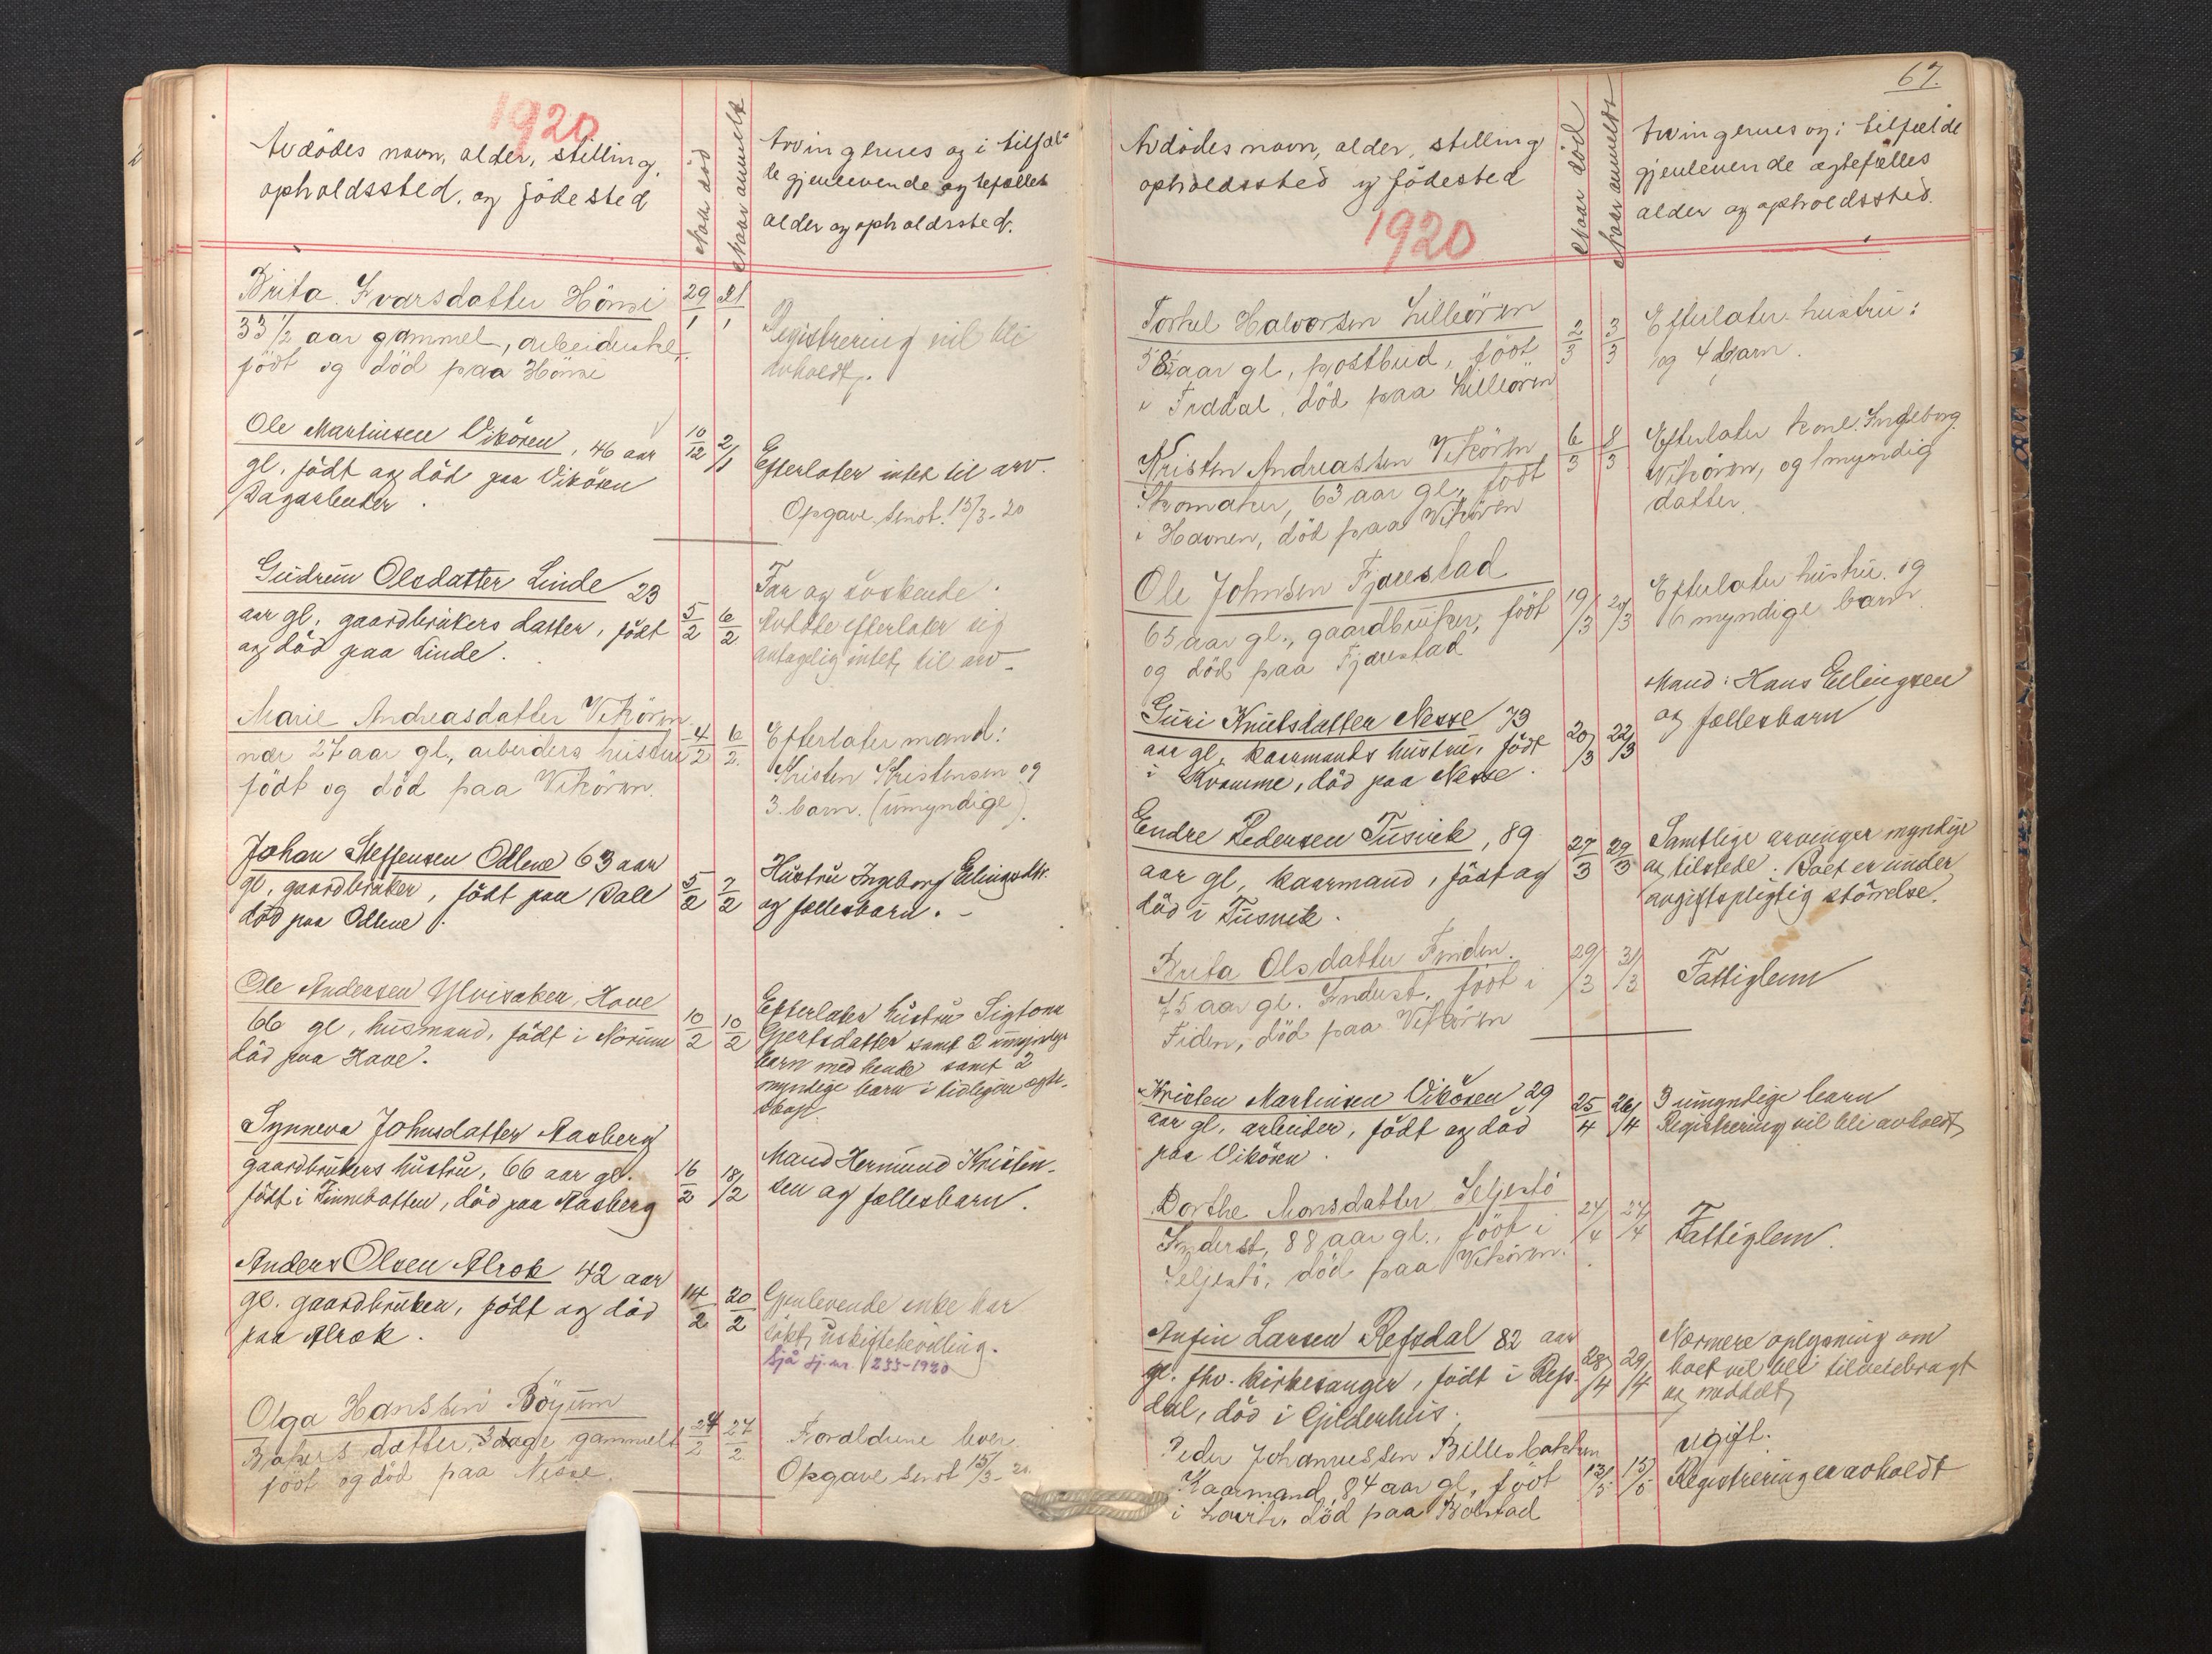 1920
Avdödes navn, alder, stilling,
opholdssted, og födested
Naar död
Naar anmeldt
Arvingernes og i tilfæl-
de gjenlevende egtefælles
alder og opholdssted.
Brita Ivarsdatter Hönsi
33 1/2 aar gammel, arbeiderske,
född og död paa Hönsi
29/1
31/1
Registrering vil bli
avholdt.
Ole Martinsen Vikören, 46 aar
gl, födt og död paa Vikören
Dagarbeider.
10/12
2/1
Efterlater intet til arv.
Opgave sendt. 15/3-20
Gudrun Olsdatter Linde 23
aar gl, gaardbrukers datter, födt
og död paa Linde.
5/2
6/2
Far og söskende.
Avdöde efterlater sig
antagelig intet til arv.
Marie Andreasdatter Vikören
nær 27 aar gl, arbeiders hustru
födt og död paa Vikören.
4/2
6/2
Efterlater mand:
Kristen Kristensen og
3 barn. (umyndige).
Johan Steffensen Odlene 63 aar
gl, gaardbruker, födt paa Dale
död paa Odlene.
5/2
7/2
Hustru Ingeborg Erlingsdtr.
og fællesbarn. -
Ole Andersen Ylvisaker, Hove
66 gl, husmand, födt i Norum
död paa Hove.
10/2
10/2
Efterlater hustru Sigtona
Gjertsdatter samt 2 umyndige
barn med hende samt 2
myndige barn i tidligere egte-
skap.
Synneva Johnsdatter Aasberg
gaardbrukers hustru, 66 aar gl.
födt i Finnebotten, död paa Aasberg
16/2
18/2
Mand Hermund Kristen-
sen og fællesbarn.
Anders Olsen Alrek 42 aar
gl. gaardbruker, födt og död
paa Alrek.
14/2
20/2
Gjenlevende enke har
sökt uskiftebevilling.
Sjå sj.nr. 233-1920
Olga Hansten Böyum
Bakers datter, 3 dage gammelt
födt og död paa Nesse.
24/2
27/2
Foreldrene lever
Opgave sendt 15/3-20.
67.
Avdödes navn, alder, stilling
opholdssted og födested
1920
Naar död
Naar anmeldt
Arvingernes og i tilfælde
gjenlevende egtefælles
alder og opholdssted.
Torkel Halvorsen Lilleören
58 aar gl, postbud, födt
i Fruddal, död paa Lilleören
2/3
3/3
Efterlater hustru:
og 4 barn.
Kristen Andreassen Vikören
Skomaker, 63 aar gl, födt
i Havnen, död paa Vikören
6/3
8/3
Efterlater kone Ingeborg
Vikören, og 1 myndig
datter.
Ole Johnsen Fjærestad
65 aar gl., gaardbruker, födt
og död paa Fjærestad
19/3
20/3
Efterlater hustru og
6 myndige barn.
Guri Knutsdatter Nesse 73
aar gl, kaarmands hustru, födt
i Kvamme, död paa Nesse.
20/3
22/3
Mand: Hans Erlingsen
og fællesbarn
Endre Pedersen Tusvik, 89
aar gl, kaarmand, födt og
död i Tusvik.
27/3
29/3
Samtlige arvinger myndige
og tilstede. Boet er under
avgiftspligtig störrelse.
Brita Olsdatter Finden.
75 aar gl. Inderst, födt i
Fiden, död paa Vikören
29/3
31/3
Fattiglem
Kristen Martinsen Vikören 29
aar gl, arbeider, födt og död
paa Vikören.
25/4
26/4
3 umyndige barn
Registrering vil bli avholdt
Dorthe Monsdatter Seljestö
Inderst, 88 aar gl., födt i
Seljestö, död paa Vikören.
24/4
27/4
Fattiglem.
Anfin Larsen Refsdal 82 aar
gl. fhv. kirkesanger, födt i Refs-
dal, död i Gilderhus.
28/4
29/4
Nærmere oplysning om
boet vil bli tilveiebragt
og meddelt
Peder Johannessen Billesbakken
Kaarmand, 84 aar gl, födt
död paa Bölstad
13/5
15/5
ugift.
Registrering er avholdt